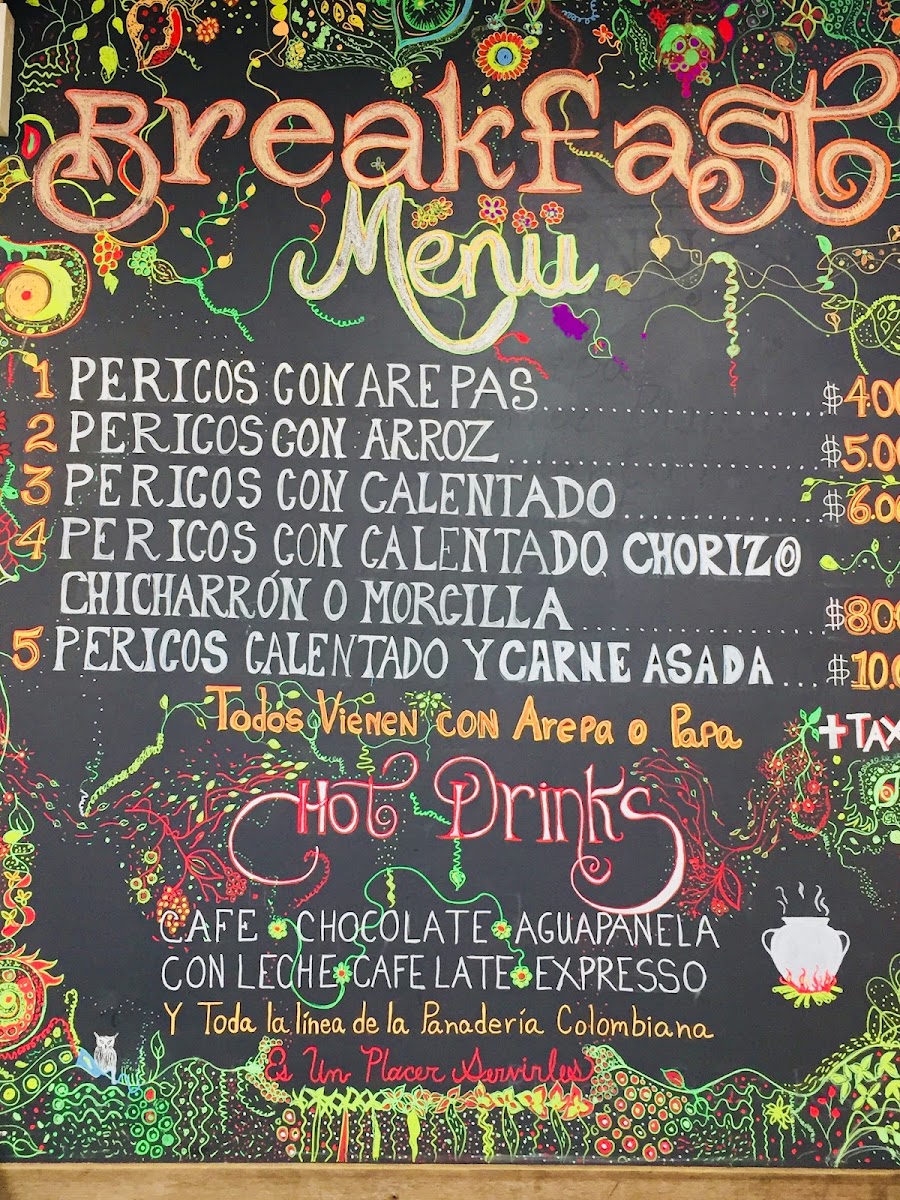 Breakfast
Menü
1 PERICOS CON AREPAS.......... $4.00
2 PERICOS CON ARROZ.......... $5.00
3 PERICOS CON CALENTADO.......... $6.00
4 PERICOS CON CALENTADO CHORIZO
CHICHARRÓN O MORCILLA.......... $8.00
5 PERICOS CALENTADO Y CARNE ASADA... $10.0
Todos Vienen con Arepa o Papa
+TAX
Hot Drinks
CAFE CHOCOLATE AGUAPANELA
CON LECHE CAFE LATE EXPRESSO
Y Toda la línea de la Panadería Colombiana
Es Un Placer Servirles